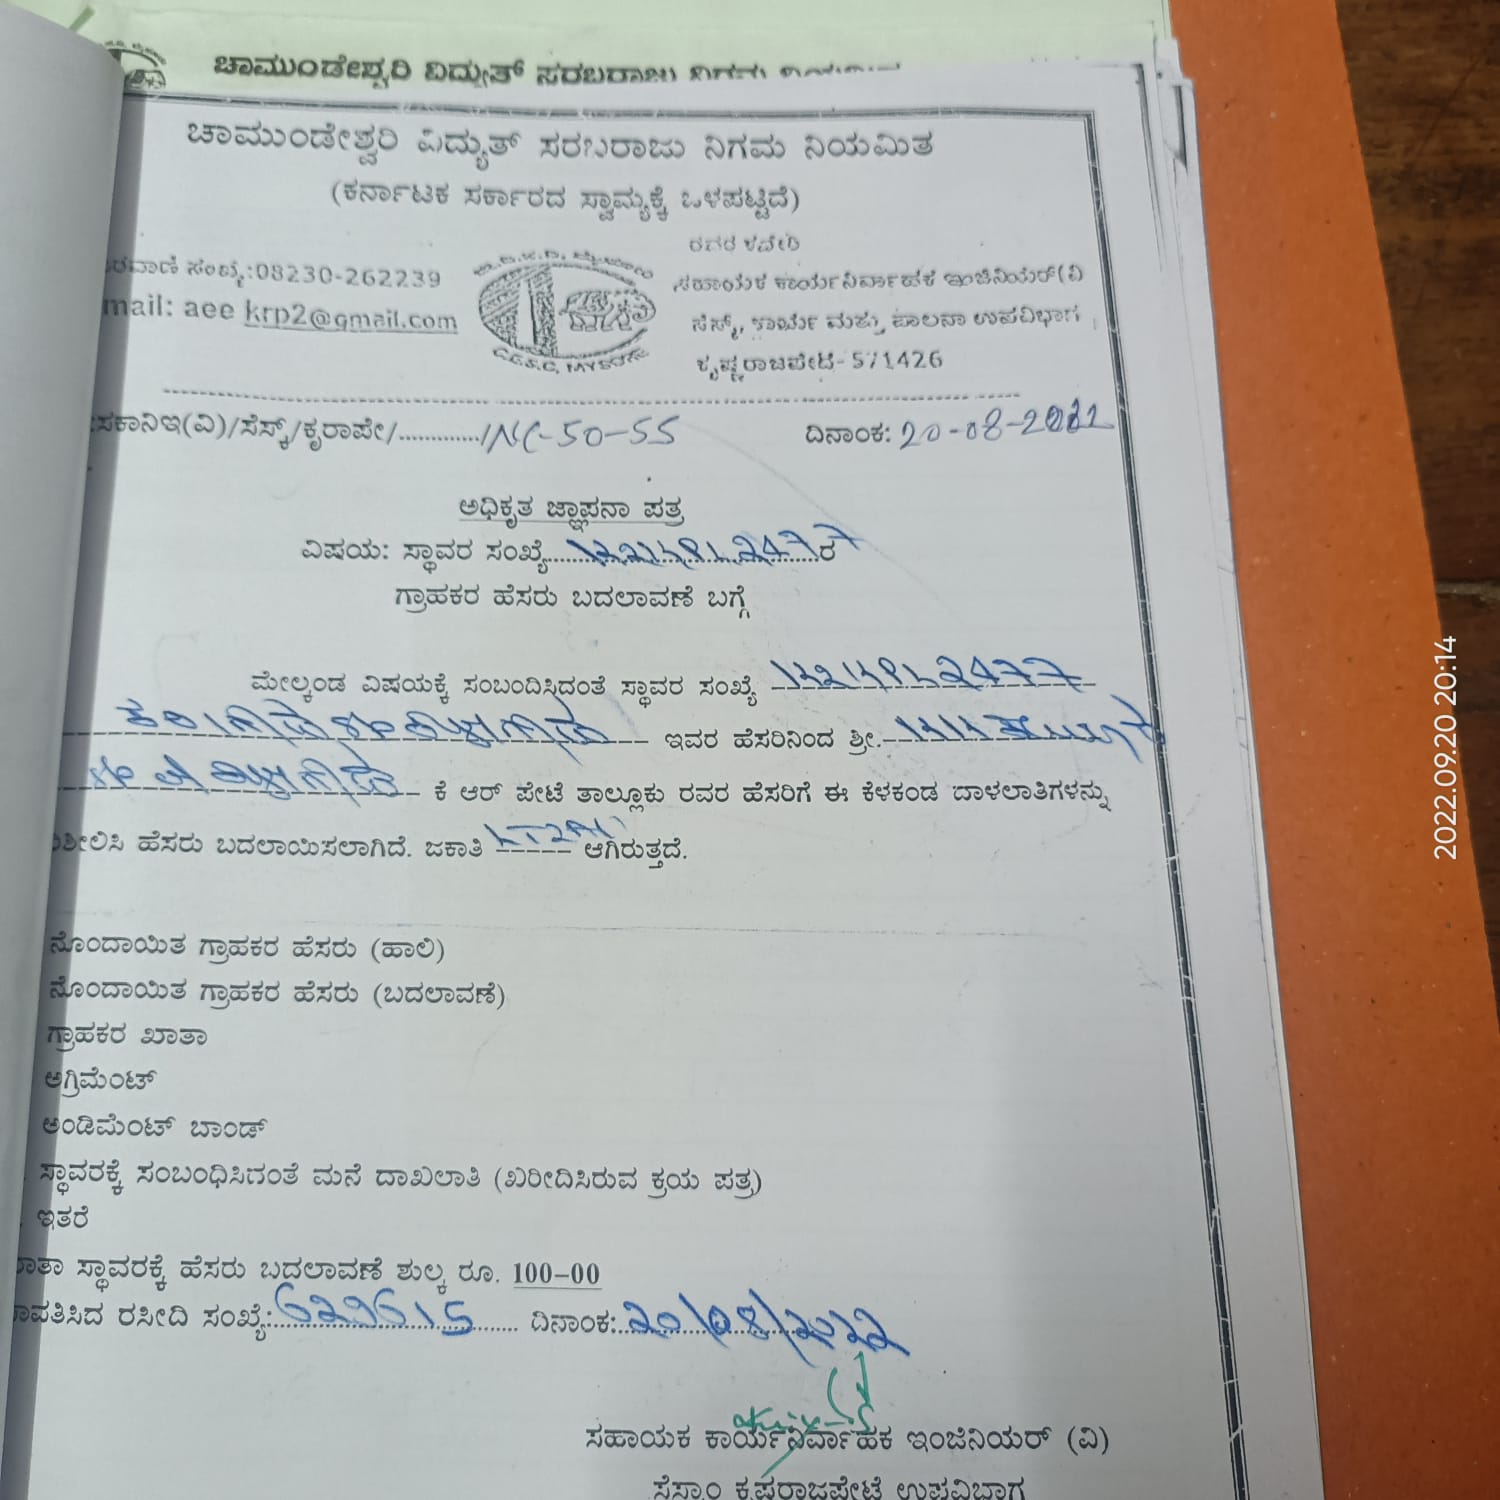 ಚಾಮುಂಡೇಶ್ವರಿ ವಿದ್ಯುತ್ ಸರಬರಾಜು ನಿಗಮ
ಚಾಮುಂಡೇಶ್ವರಿ ವಿದ್ಯುತ್ ಸರಬರಾಜು ನಿಗಮ ನಿಯಮಿತ
(ಕರ್ನಾಟಕ ಸರ್ಕಾರದ ಸ್ವಾಮ್ಯಕ್ಕೆ ಒಳಪಟ್ಟಿದೆ)
ರವಾಣಿ ಸಂಖ್ಯೆ:08230-262239
mail: aee krp2@gmail.com
C.E.S.C, MYSORE
ಸಹಾಯಕ ಕಾರ್ಯನಿರ್ವಾಹಕ ಇಂಜಿನಿಯರ್(ವಿ
ಸೆಸ್ಕ್, ಕಾರ್ಯ ಮತ್ತು ಪಾಲನಾ ಉಪವಿಭಾಗ
ಕೃಷ್ಣರಾಜಪೇಟೆ-571426
ಸಕಾನಿಇ(ವಿ)/ಸೆಸ್ಕ್/ಕೃರಾಪೇ/............./NC-50-55 ದಿನಾಂಕ: 20-08-2022
ಅಧಿಕೃತ ಜ್ಞಾಪನಾ ಪತ್ರ
ವಿಷಯ: ಸ್ಥಾವರ ಸಂಖ್ಯೆ ರ
ಗ್ರಾಹಕರ ಹೆಸರು ಬದಲಾವಣೆ ಬಗ್ಗೆ
ಮೇಲ್ಕಂಡ ವಿಷಯಕ್ಕೆ ಸಂಬಂದಿಸಿದಂತೆ ಸ್ಥಾವರ ಸಂಖ್ಯೆ
ಇವರ ಹೆಸರಿನಿಂದ ಶ್ರೀ.
ಕೆ ಆರ್ ಪೇಟೆ ತಾಲ್ಲೂಕು ರವರ ಹೆಸರಿಗೆ ಈ ಕೆಳಕಂಡ ದಾಳಲಾತಿಗಳನ್ನು
ಶೀಲಿಸಿ ಹೆಸರು ಬದಲಾಯಿಸಲಾಗಿದೆ. ಜಕಾತಿ ಆಗಿರುತ್ತದೆ.
ನೊಂದಾಯಿತ ಗ್ರಾಹಕರ ಹೆಸರು (ಹಾಲಿ)
ನೊಂದಾಯಿತ ಗ್ರಾಹಕರ ಹೆಸರು (ಬದಲಾವಣೆ)
ಗ್ರಾಹಕರ ಖಾತಾ
ಅಗ್ರಿಮೆಂಟ್
ಅಂಡಿಮೆಂಟ್ ಬಾಂಡ್
ಸ್ಥಾವರಕ್ಕೆ ಸಂಬಂಧಿಸಿದಂತೆ ಮನೆ ದಾಖಲಾತಿ (ಖರೀದಿಸಿರುವ ಕ್ರಯ ಪತ್ರ)
ಇತರೆ
ಾತಾ ಸ್ಥಾವರಕ್ಕೆ ಹೆಸರು ಬದಲಾವಣೆ ಶುಲ್ಕ ರೂ. 100-00
ಾವತಿಸಿದ ರಸೀದಿ ಸಂಖ್ಯೆ: 629615 ದಿನಾಂಕ: 20/08/2022
ಸಹಾಯಕ ಕಾರ್ಯನಿರ್ವಾಹಕ ಇಂಜಿನಿಯರ್ (ವಿ)
ಸೆಸ್ಕಾಂ ಕೃಷ್ಣರಾಜಪೇಟೆ ಉಪವಿಭಾಗ
2022.09.20 20:14